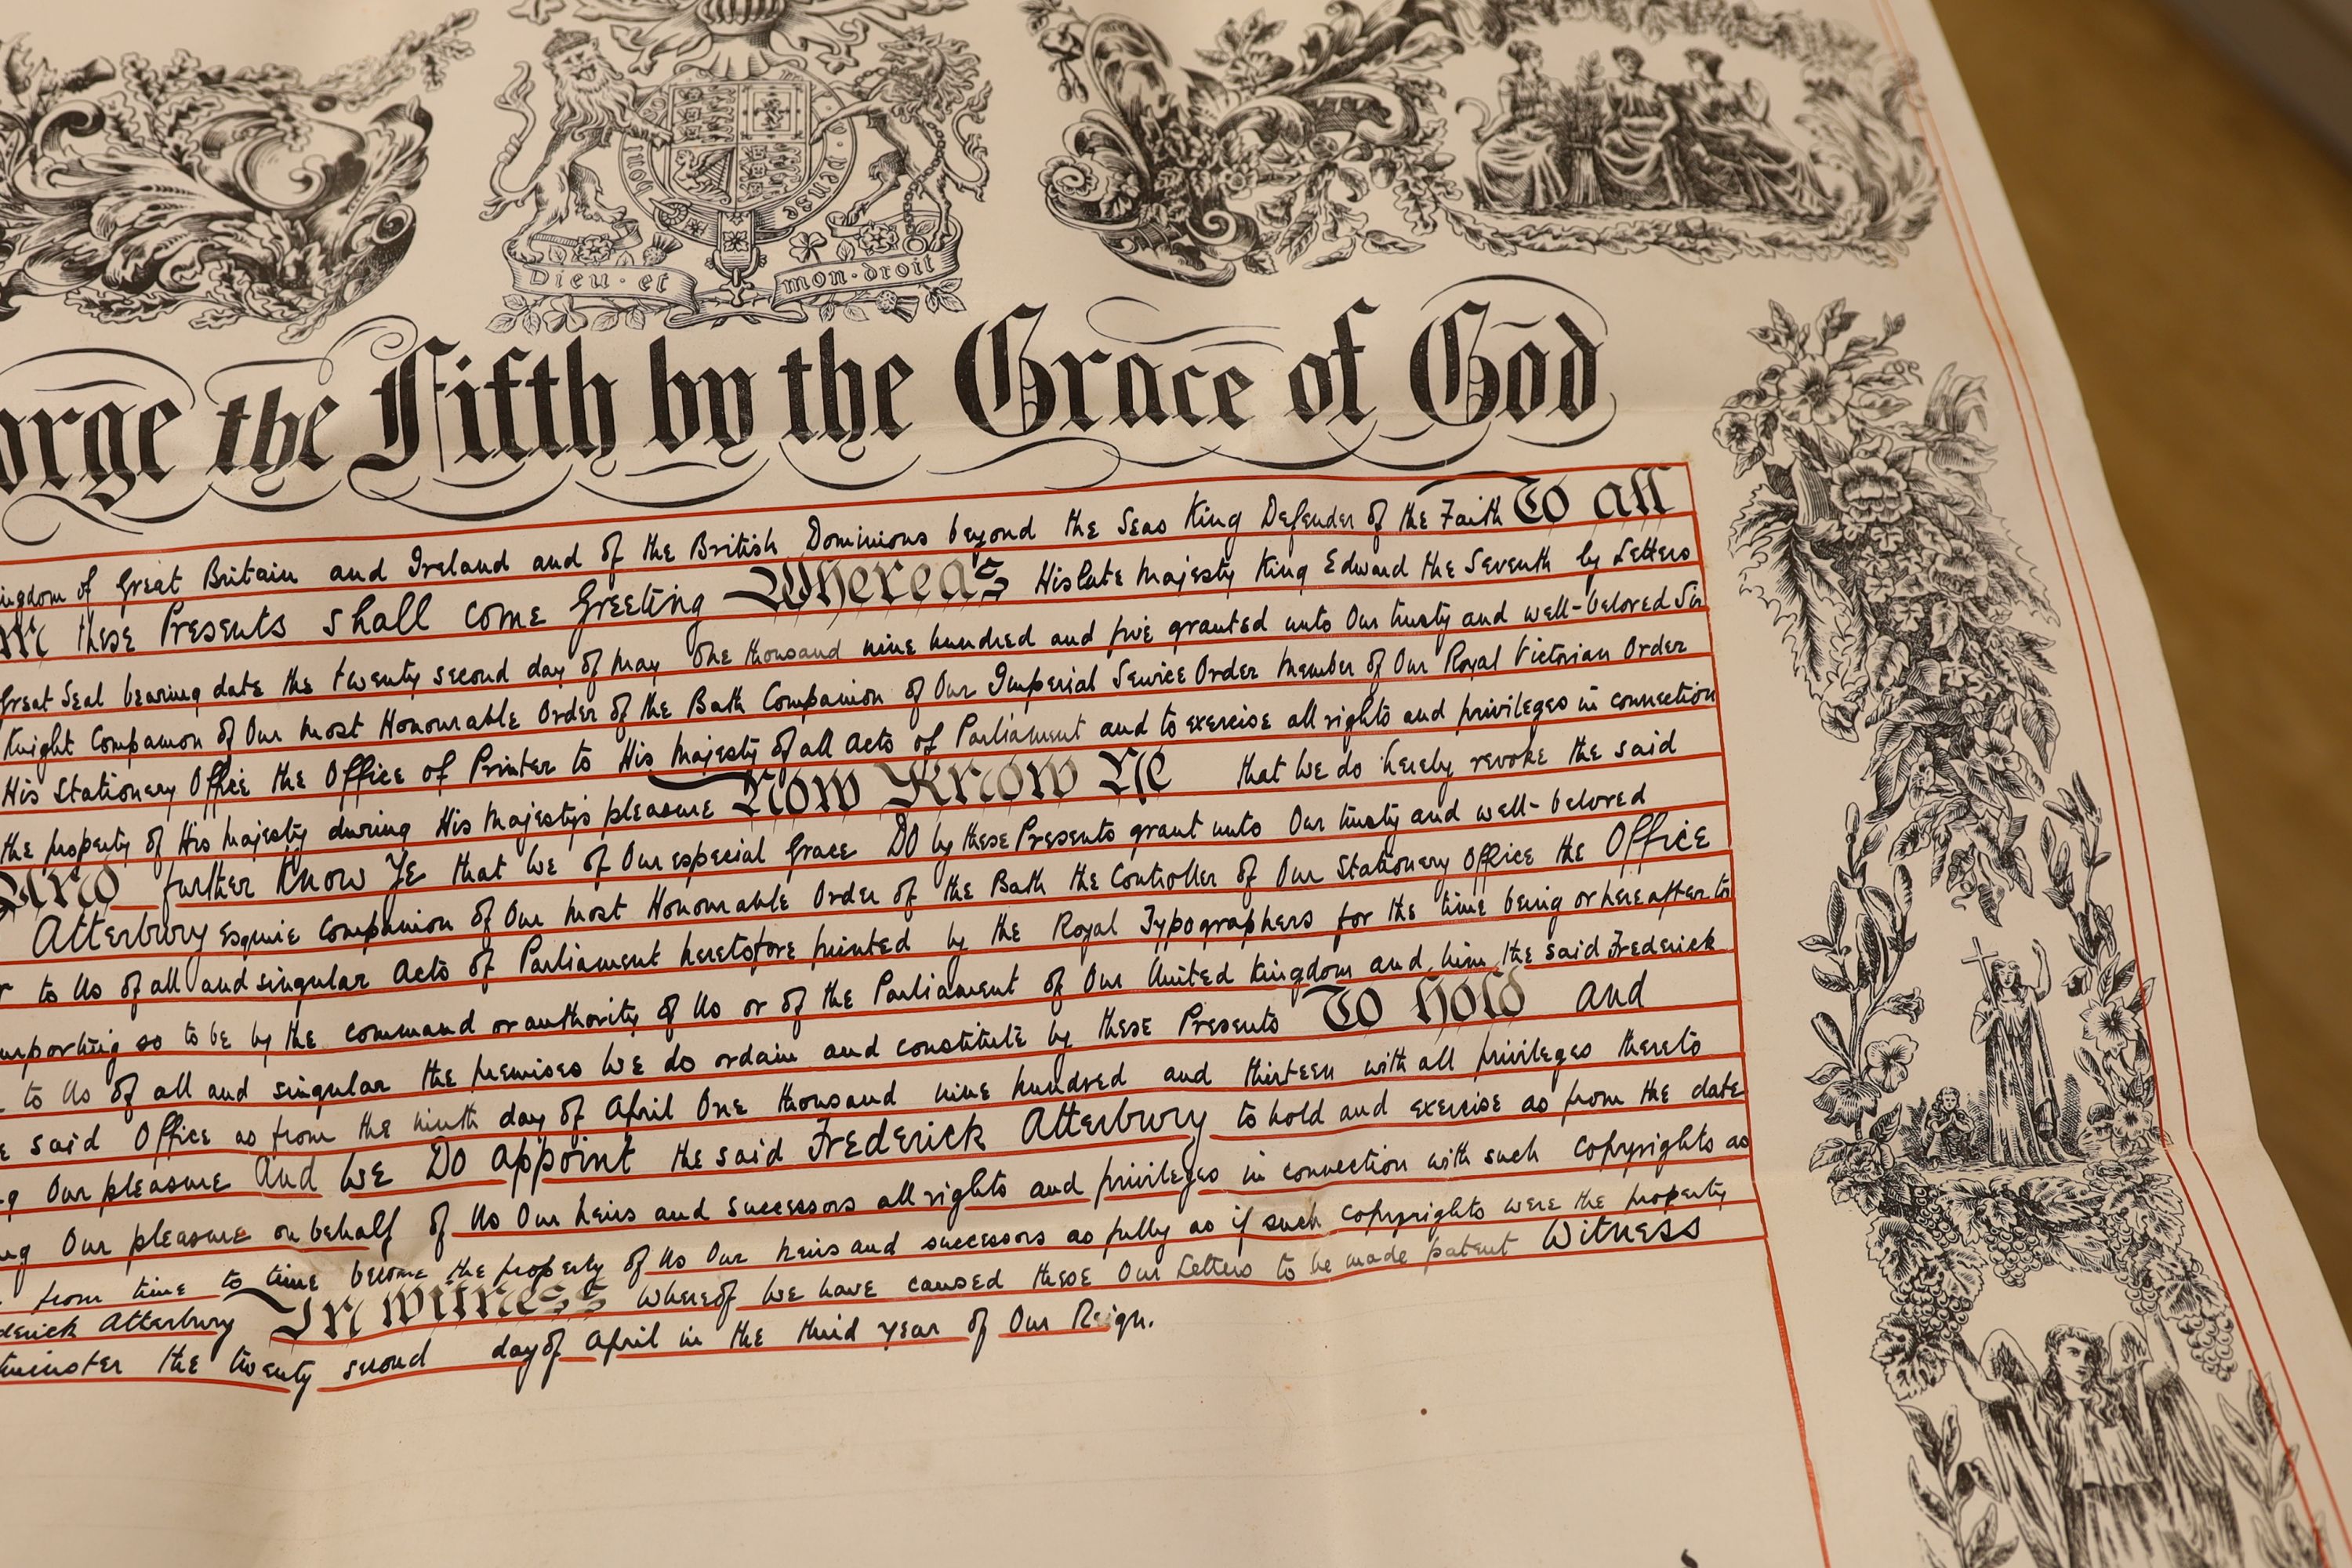 Dieu · et mon · droit
orge the Fifth by the Grace of God
ingdom of Great Britain and Ireland and of the British Dominions beyond the Seas King Defender of the Faith To all
these Presents shall come Greeting Whereas His late Majesty King Edward the Seventh by Letters
Great Seal bearing date the twenty second day of May One thousand nine hundred and five granted unto Our trusty and well-beloved Sir
Knight Companion of Our Most Honourable Order of the Bath Companion of Our Imperial Service Order Member of Our Royal Victorian Order
His Stationery Office the Office of Printer to His Majesty of all Acts of Parliament and to exercise all rights and privileges in connection
the property of His Majesty during His Majesty's pleasure Now Know Ye that We do hereby revoke the said
And further Know Ye that We of Our especial Grace Do by these Presents grant unto Our trusty and well-beloved
Atterbury Esquire Companion of Our Most Honourable Order of the Bath the Controller of Our Stationery Office the Office
r to Us of all and singular Acts of Parliament heretofore printed by the Royal Typographers for the time being or hereafter to
urporting so to be by the command or authority of Us or of the Parliament of Our United Kingdom and him the said Frederick
to Us of all and singular the premises We do ordain and constitute by these Presents To Hold and
e said Office as from the ninth day of April One thousand nine hundred and thirteen with all privileges thereto
g Our pleasure And We Do Appoint the said Frederick Atterbury to hold and exercise as from the date
ng Our pleasure on behalf of Us Our heirs and successors all rights and privileges in connection with such Copyrights as
from time to time become the property of Us Our heirs and successors as fully as if such Copyrights were the property
derick Atterbury In witness whereof We have caused these Our Letters to be made patent Witness
tminster the twenty second day of April in the third year of Our Reign.